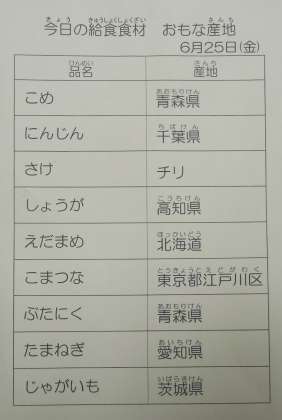 今日の給食食材　おもな産地
6月25日(金)
品名　産地
こめ　青森県
にんじん　千葉県
さけ　チリ
しょうが　高知県
えだまめ　北海道
こまつな　東京都江戸川区
ぶたにく　青森県
たまねぎ　愛知県
じゃがいも　茨城県